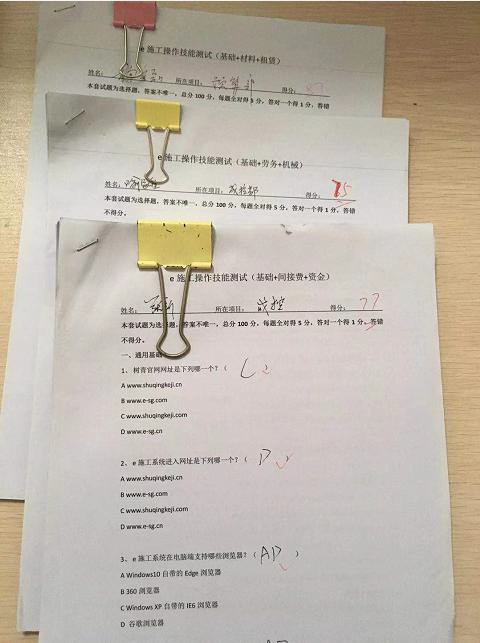 e 施工操作技能测试（基础+材料+租赁）
姓名： 所在项目： 得分：
本套试题为选择题，答案不唯一，总分 100 分，每题全对得 5 分，答对一个得 1 分，答错
e 施工操作技能测试（基础+劳务+机械）
姓名： 所在项目：成控部 得分：75
本套试题为选择题，答案不唯一，总分 100 分，每题全对得 5 分，答对一个得 1 分，答错
不得分。
e 施工操作技能测试（基础+间接费+资金）
姓名： 所在项目：成控 得分：77
本套试题为选择题，答案不唯一，总分 100 分，每题全对得 5 分，答对一个得 1 分，答错
不得分。
一、通用基础
1、树青官网网址是下列哪一个？（ C
A www.shuqingkeji.cn
B www.e-sg.com
C www.shuqingkeji.com
D www.e-sg.cn
2、e 施工系统进入网址是下列哪一个？（ D ）
A www.shuqingkeji.cn
B www.e-sg.com
C www.shuqingkeji.com
D www.e-sg.cn
3、e 施工系统在电脑端支持哪些浏览器？（ AD ）
A Windows10 自带的 Edge 浏览器
B 360 浏览器
C Windows XP 自带的 IE6 浏览器
D 谷歌浏览器